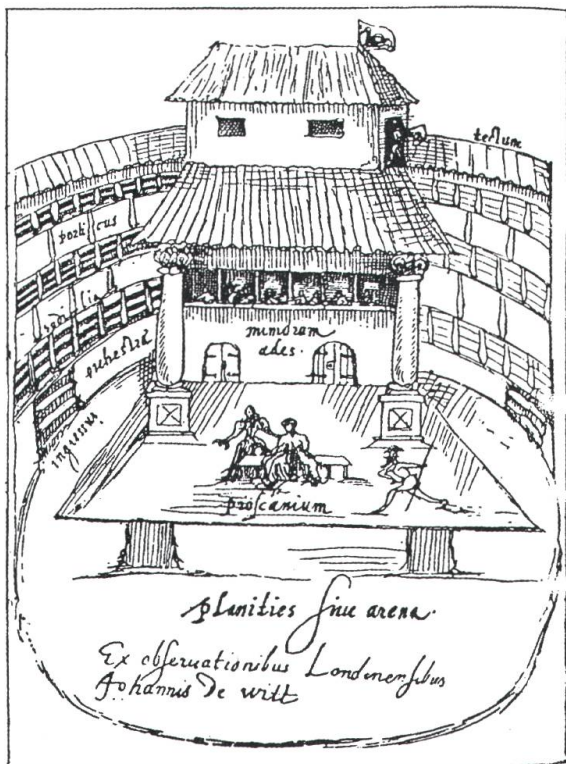 tectum
porticus
sedilia
orchestra
ingressus
mimorum
ædes.
proscænium
planities siue arena.
Ex obseruationibus Londinensibus
Johannis De witt